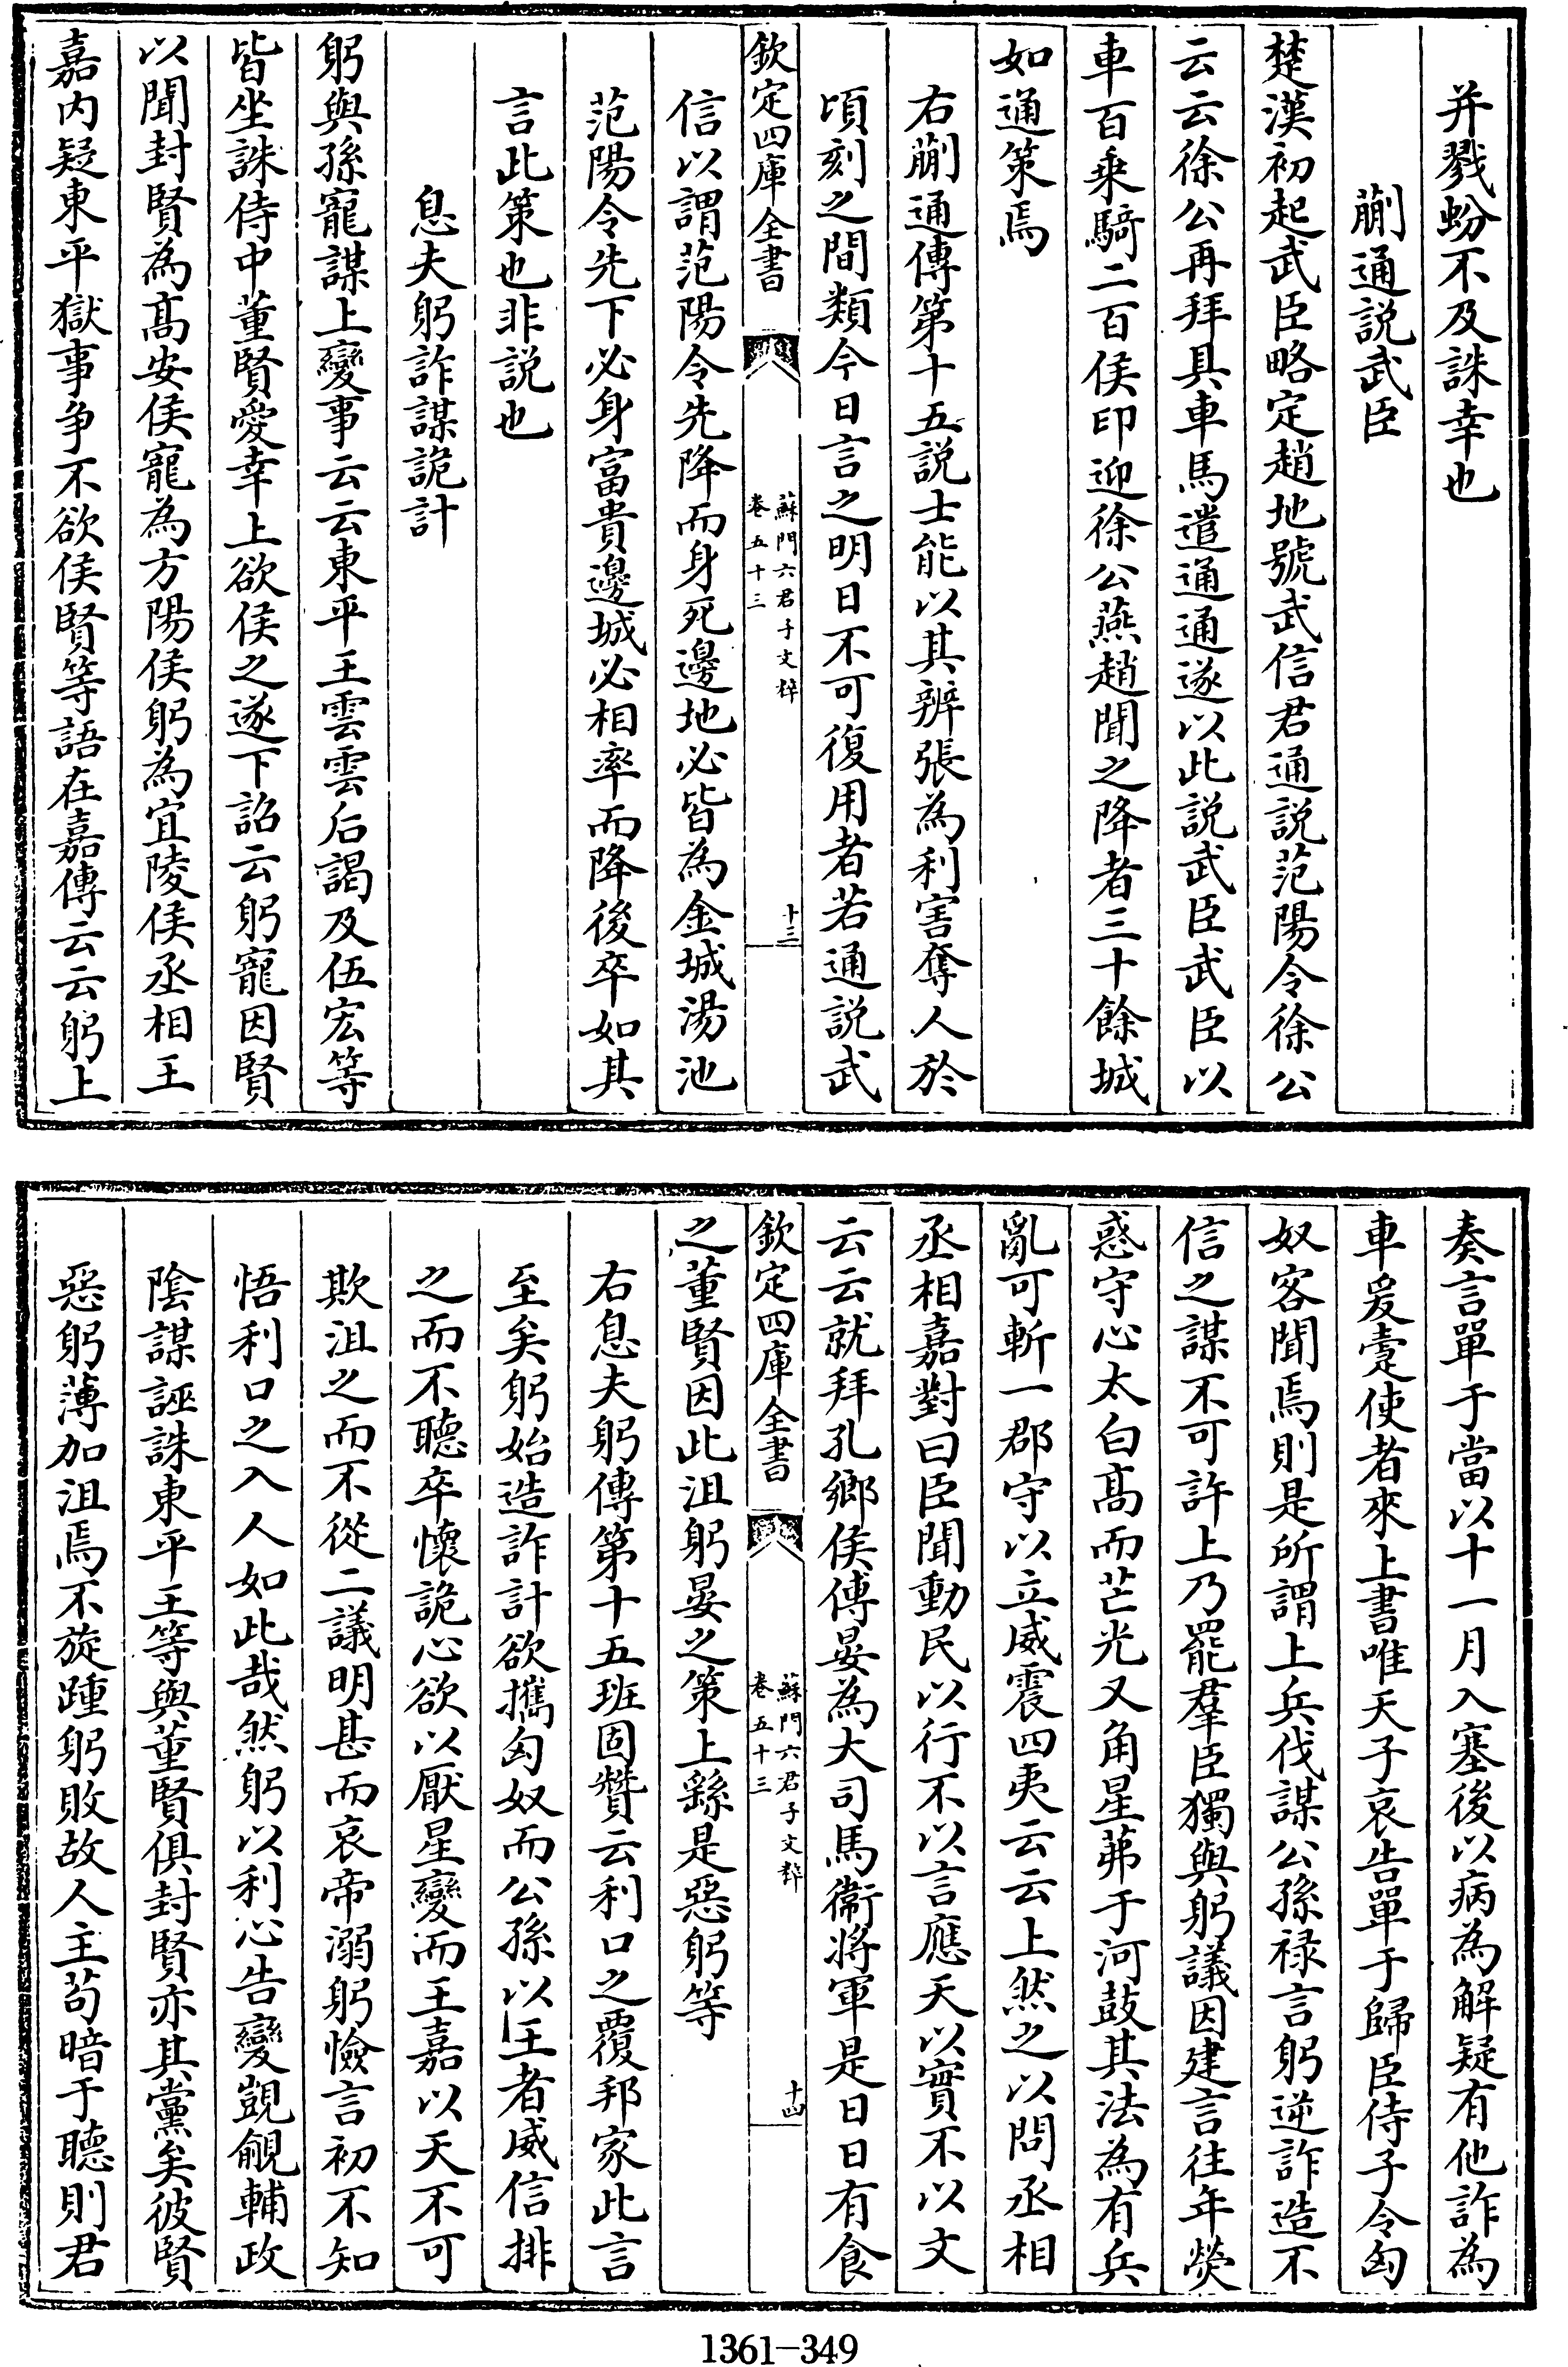 并戮蚡不及誅幸也
蒯通説武臣
楚漢初起武臣略定趙地號武信君通説范陽令徐公
云云徐公再拜具車馬遣通通遂以此説武臣武臣以
車百乗騎二百侯印迎徐公燕趙聞之降者三十餘城
如通策焉
右蒯通傳第十五説士能以其辨張為利害奪人於
頃刻之間類今日言之明日不可復用者若通説武
欽定四庫全書
蘇門六君子文粹
卷五十三
十三
信以謂范陽令先降而身死邊地必皆為金城湯池
范陽令先下必身富貴邊城必相率而降後卒如其
言此策也非説也
息夫躬詐謀詭計
躬與孫寵謀上變事云云東平王雲雲后謁及伍宏等
皆坐誅侍中董賢愛幸上欲侯之遂下詔云躬寵因賢
以聞封賢為髙安侯寵為方陽侯躬為宜陵侯丞相王
嘉内疑東平獄事争不欲侯賢等語在嘉傳云云躬上
奏言單于當以十一月入塞後以病為解疑有他詐為
車爰疐使者來上書唯天子哀告單于歸臣侍子令匈
奴客聞焉則是所謂上兵伐謀公孫禄言躬逆詐造不
信之謀不可許上乃罷羣臣獨與躬議因建言往年熒
惑守心太白髙而芒光又角星茀于河鼓其法為有兵
亂可斬一郡守以立威震四夷云云上然之以問丞相
丞相嘉對曰臣聞動民以行不以言應天以實不以文
云云就拜孔鄉侯傅晏為大司馬衞將軍是日日有食
欽定四庫全書
蘇門六君子文粹
卷五十三
十四
之董賢因此沮躬晏之策上繇是惡躬等
右息夫躬傳第十五班固贊云利口之覆邦家此言
至矣躬始造詐計欲攜匈奴而公孫以王者威信排
之而不聽卒懷詭心欲以厭星變而王嘉以天不可
欺沮之而不從二議明甚而哀帝溺躬憸言初不知
悟利口之入人如此哉然躬以利心告變覬覦輔政
陰謀誣誅東平王等與董賢俱封賢亦其黨矣彼賢
惡躬薄加沮焉不旋踵躬敗故人主苟暗于聽則君
1361-349